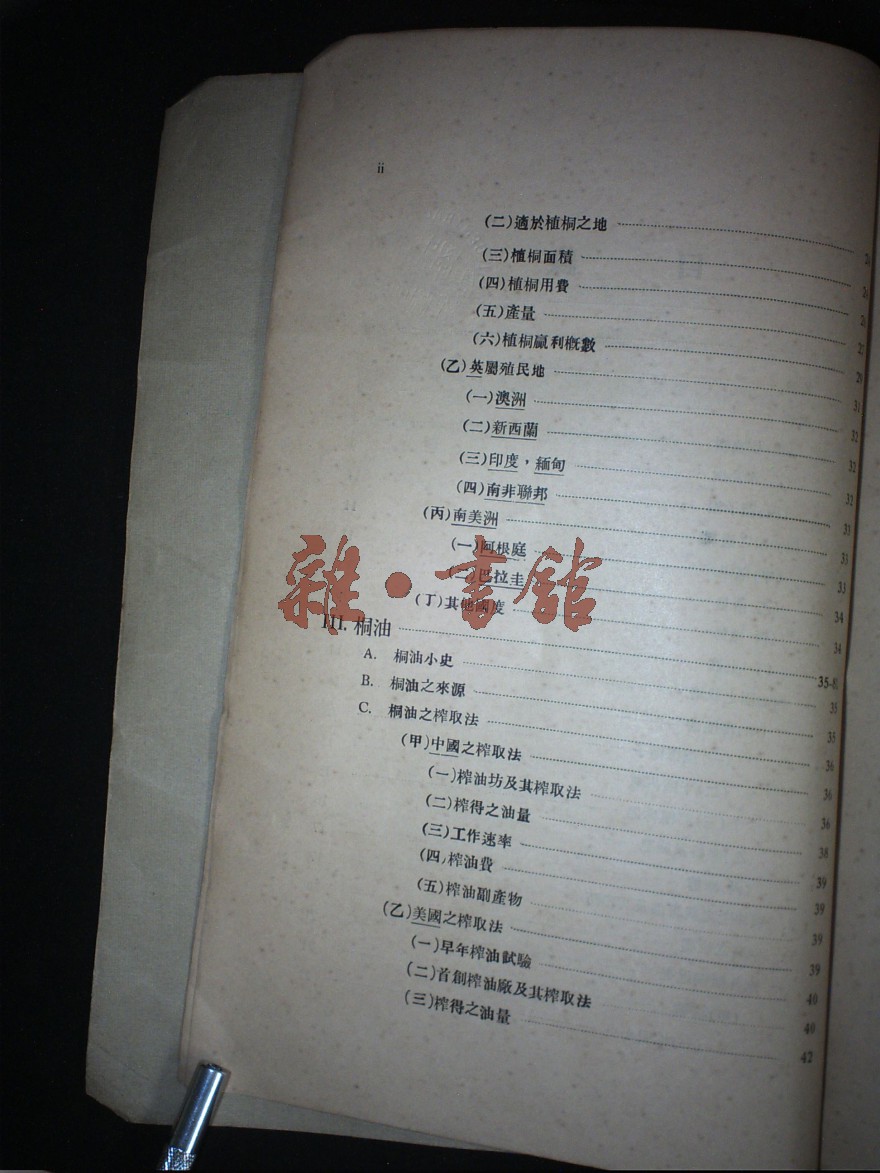 ii
(二)適於植桐之地
(三)植桐面積
(四)植桐用費
(五)產量
(六)植桐贏利概數 29
(乙)英屬殖民地 31
(一)澳洲 32
(二)新西蘭 32
(三)印度，緬甸 32
(四)南非聯邦 33
(丙)南美洲 33
(一)阿根庭 33
(二)巴拉圭 34
(丁)其他國度 34
III. 桐油 35-8
A. 桐油小史 35
B. 桐油之來源 35
C. 桐油之榨取法 36
(甲)中國之榨取法 36
(一)榨油坊及其榨取法 36
(二)榨得之油量 38
(三)工作速率 39
(四)榨油費 39
(五)榨油副產物 39
(乙)美國之榨取法 39
(一)早年榨油試驗 40
(二)首創榨油廠及其榨取法 40
(三)榨得之油量 42
雜·書館